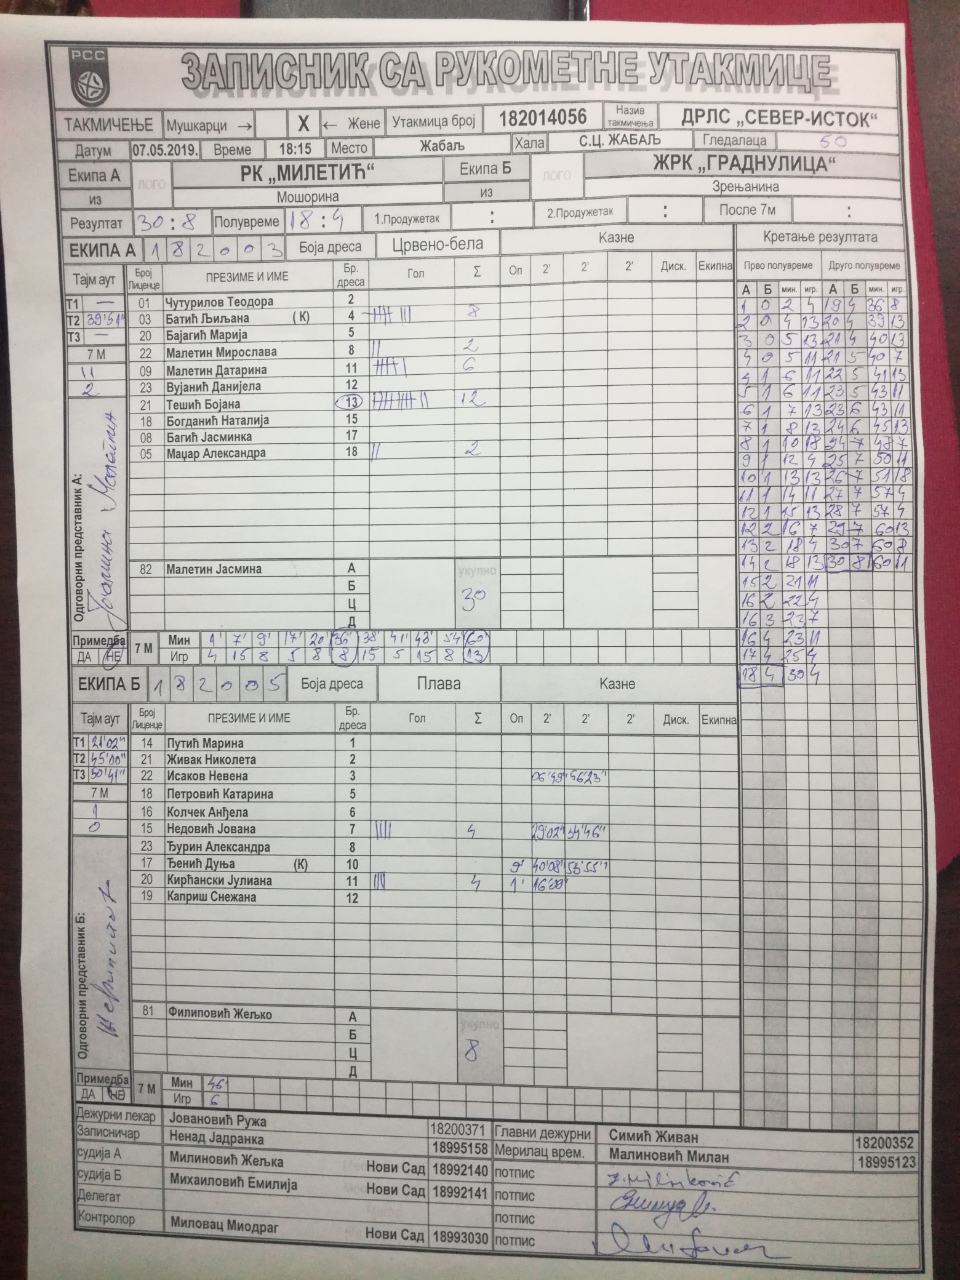 РСС
ЗАПИСНИК СА РУКОМЕТНЕ УТАКМИЦЕ
ТАКМИЧЕЊЕ Мушкарци → X ← Жене Утакмица број 182014056 Назив такмичења ДРЛС „СЕВЕР-ИСТОК“
Датум 07.05.2019. Време 18:15 Место Жабаљ Хала С.Ц. ЖАБАЉ Гледалаца 50
Екипа А ЛОГО РК „МИЛЕТИЋ“ Екипа Б ЛОГО ЖРК „ГРАДНУЛИЦА“
из Мошорина из Зрењанина
Резултат 30:8 Полувреме 18:4 1.Продужетак : 2.Продужетак : После 7м :
ЕКИПА А 182003 Боја дреса Црвено-бела Казне Кретање резултата
Тајм аут Број Лиценце ПРЕЗИМЕ И ИМЕ Бр. дреса Гол Σ Оп 2' 2' 2' Диск. Екипна Прво полувреме Друго полувреме
А Б мин. игр. А Б мин. игр.
Т1 — 01 Чутурилов Теодора 2
Т2 39'51" 03 Батић Љиљана (К) 4 8
Т3 — 20 Бајагић Марија 5
7 М 22 Малетин Мирослава 8 2
11 09 Малетин Датарина 11 6
2 23 Вујанић Данијела 12
21 Тешић Бојана 13 12
18 Богданић Наталија 15
08 Багић Јасминка 17
05 Маџар Александра 18 2
Одговорни представник А:
82 Малетин Јасмина А укупно 30
Б
Ц
Д
1 0 2 4 19 4 36 8
2 0 4 13 20 4 39 13
3 0 5 13 21 4 40 13
4 0 5 11 21 5 40 7
4 1 6 11 22 5 41 13
5 1 6 11 23 5 43 11
6 1 7 13 23 6 43 11
7 1 8 13 24 6 45 13
8 1 10 18 24 7 48 7
9 1 12 4 25 7 50 11
10 1 13 13 26 7 51 18
11 1 14 11 27 7 57 4
12 1 15 13 28 7 57 4
12 2 16 7 29 7 60 13
13 2 18 4 30 7 60 8
14 2 18 13 30 8 60 11
15 2 21 11
16 2 22 4
16 3 23 7
16 4 23 11
17 4 25 4
18 4 30 4
Примедба ДА НЕ 7 М Мин 1' 7' 9' 17' 20 36' 38' 41' 48' 54 60'
Игр 4 15 8 5 8 8 15 5 15 8 13
ЕКИПА Б 182005 Боја дреса Плава Казне
Тајм аут Број Лиценце ПРЕЗИМЕ И ИМЕ Бр. дреса Гол Σ Оп 2' 2' 2' Диск. Екипна
Т1 21'02" 14 Путић Марина 1
Т2 45'00" 21 Живак Николета 2
Т3 50'41" 22 Исаков Невена 3 06'49" 56'23"
7 М 18 Петровић Катарина 5
1 16 Колчек Анђела 6
0 15 Недовић Јована 7 4 29'02" 54'46"
23 Ђурин Александра 8
17 Ђенић Дуња (К) 10 9' 40'08" 53'55"
20 Кирћански Јулиана 11 4 1' 16'00"
19 Каприш Снежана 12
Одговорни представник Б:
81 Филиповић Жељко А укупно 8
Б
Ц
Д
Примедба ДА НЕ 7 М Мин 46'
Игр 6
Дежурни лекар Јовановић Ружа 18200371 Главни дежурни Симић Живан 18200352
Записничар Ненад Јадранка 18995158 Мерилац врем. Малиновић Милан 18995123
судија А Милиновић Жељка Нови Сад 18992140 потпис
судија Б Михаиловић Емилија Нови Сад 18992141 потпис
Делегат потпис
Контролор Миловац Миодраг Нови Сад 18993030 потпис